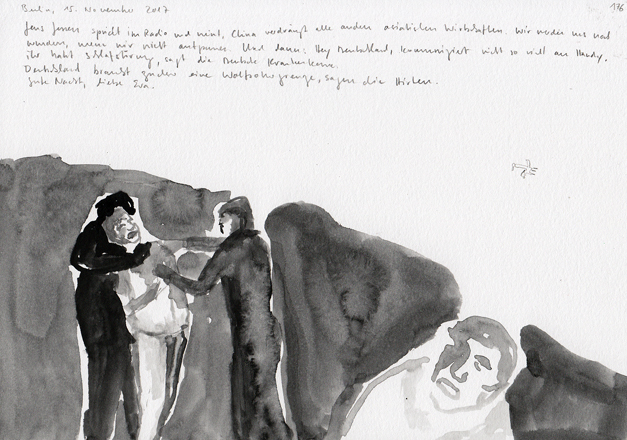 Berlin, 15. November 2017
176
Jens Jensen spricht im Radio und meint, China verdrängt alle anderen asiatischen Wirtschaften. Wir werden uns noch
wundern, wenn wir nicht aufpassen. Und dann: Hey Deutschland, kommuniziert nicht so viel am Handy,
ihr habt Schlafstörung, sagt die Deutsche Krankenkasse.
Deutschland braucht eine Wolfsobergrenze, sagen die Hirten.
Gute Nacht, liebe Eva.